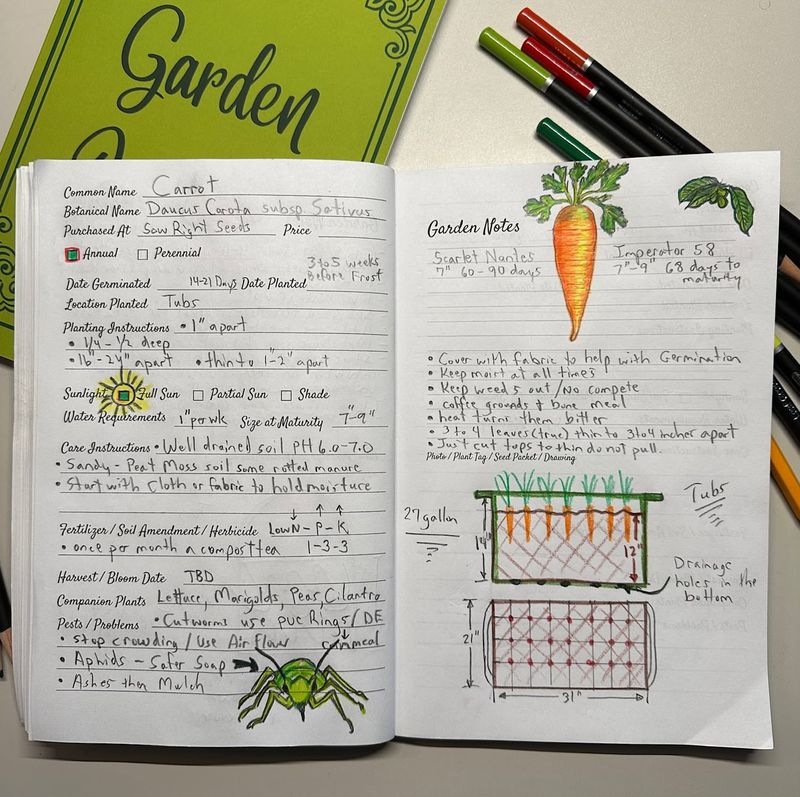 Garden
Common Name Carrot
Botanical Name Daucus Carota subsp. Sativus
Purchased At Sow Right Seeds Price
Annual Perennial
3 to 5 weeks
Before Frost
Date Germinated 14-21 Days Date Planted
Location Planted Tubs
Planting Instructions • 1" apart
• 1/4 - 1/2 deep
• 16"-24" apart • thin to 1-2" apart
Sunlight Full Sun Partial Sun Shade
Water Requirements 1" per wk Size at Maturity 7"-9"
Care Instructions • Well drained soil PH 6.0-7.0
• Sandy - Peat Moss soil some rotted manure
• Start with Cloth or fabric to hold moisture
↓ ↑ ↑
Fertilizer / Soil Amendment / Herbicide Low N - P - K
• once per month a compost tea 1-3-3
Harvest / Bloom Date TBD
Companion Plants Lettuce, Marigolds, Peas, Cilantro
Pests / Problems • Cutworms use PVC Rings / DE
• Stop crowding / Use Air Flow cornmeal
• Aphids - Safer Soap
• Ashes then Mulch
Garden Notes
Scarlet Nantes
7" 60-90 days
Imperator 58
7"-9" 68 days to
maturity
• Cover with fabric to help with Germination
• Keep moist at all times
• Keep weeds out / No compete
• coffee grounds & bone meal
• heat turns them bitter
• 3 to 4 leaves (true) thin to 3 to 4 inches apart
• Just cut tops to thin do not pull.
Photo / Plant Tag / Seed Packet / Drawing
Tubs
27 gallon
14"
12"
Drainage
holes in the
bottom
21"
31"